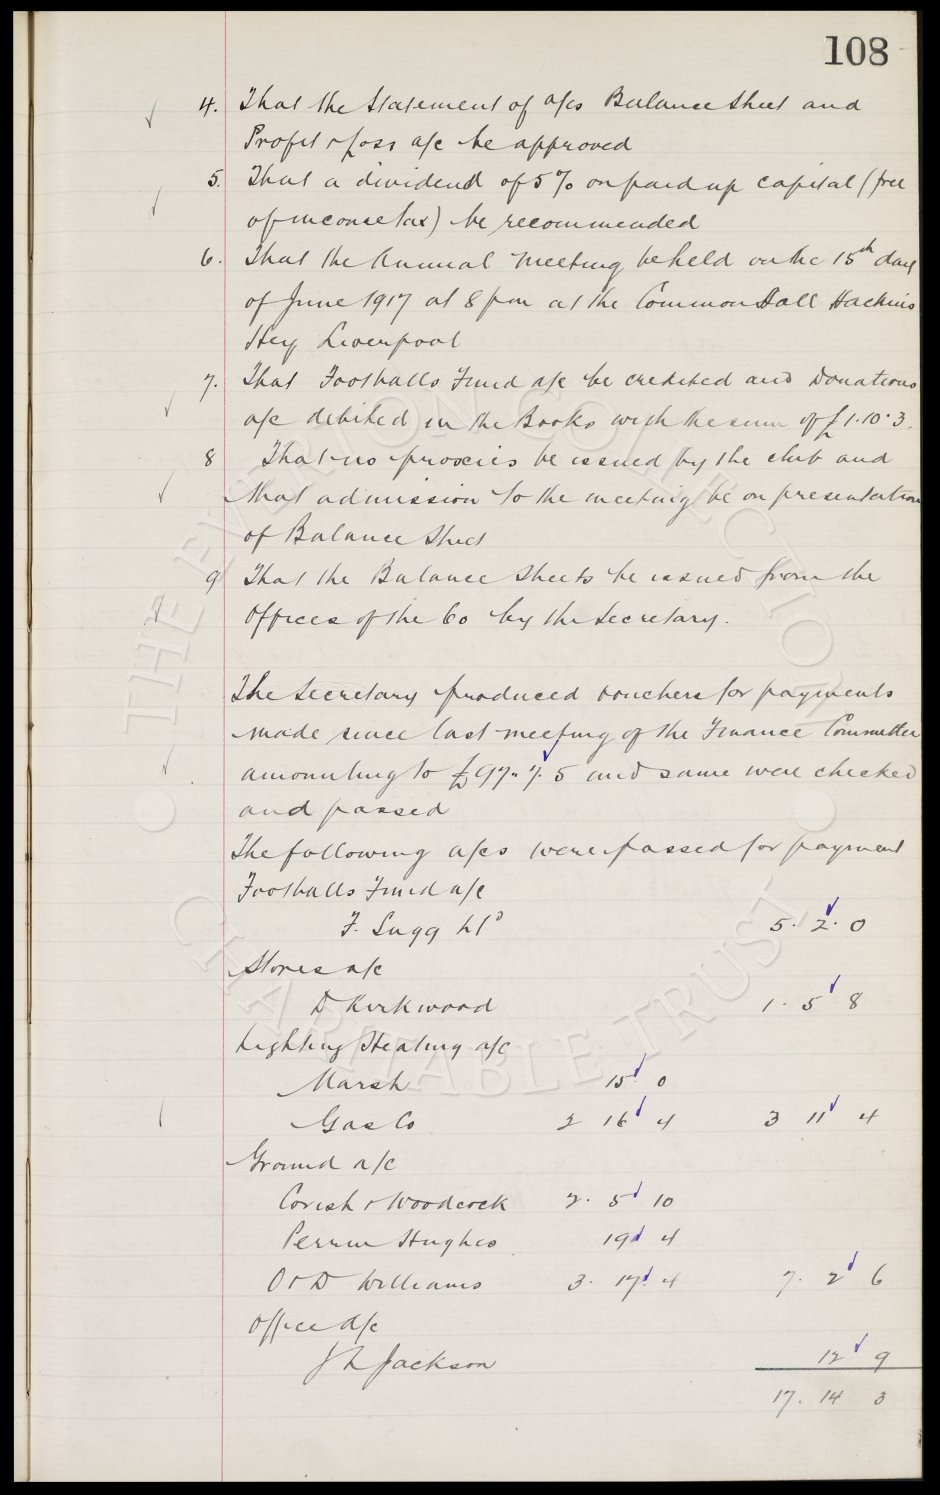 108
4. That the Statement of a/cs Balance Sheet and
Profit & Loss a/c be approved
5. That a dividend of 5% on paid up capital (free
of income tax) be recommended
6. That the Annual Meeting be held on the 15th day
of June 1917 at 8 pm at the Common Hall Hackins
Hey Liverpool
7. That Footballs Fund a/c be credited and Donations
a/c debited in the Books with the sum of £1.10.3.
8 That no proxies be issued by the club and
that admission to the meeting be on presentation
of Balance Sheet
9 That the Balance Sheets be issued from the
Offices of the Co by the Secretary.
The Secretary produced vouchers for payments
made since last meeting of the Finance Committee
amounting to £97.7.5 and same were checked
and passed
The following a/cs were passed for payment
Footballs Fund a/c
F. Sugg Ltd 5. 2. 0
Stores a/c
D Kirkwood 1. 5 8
Lighting Heating a/c
Marsh 15 0
Gas Co 2 16 4 3 11 4
Ground a/c
Corish & Woodcock 2. 5 10
Perrin Hughes 19 4
O & D Williams 3. 17. 4 7. 2 6
Office a/c
J L Jackson 12 9
17. 14 3
THE EVERTON COLLECTION
CHARITABLE TRUST